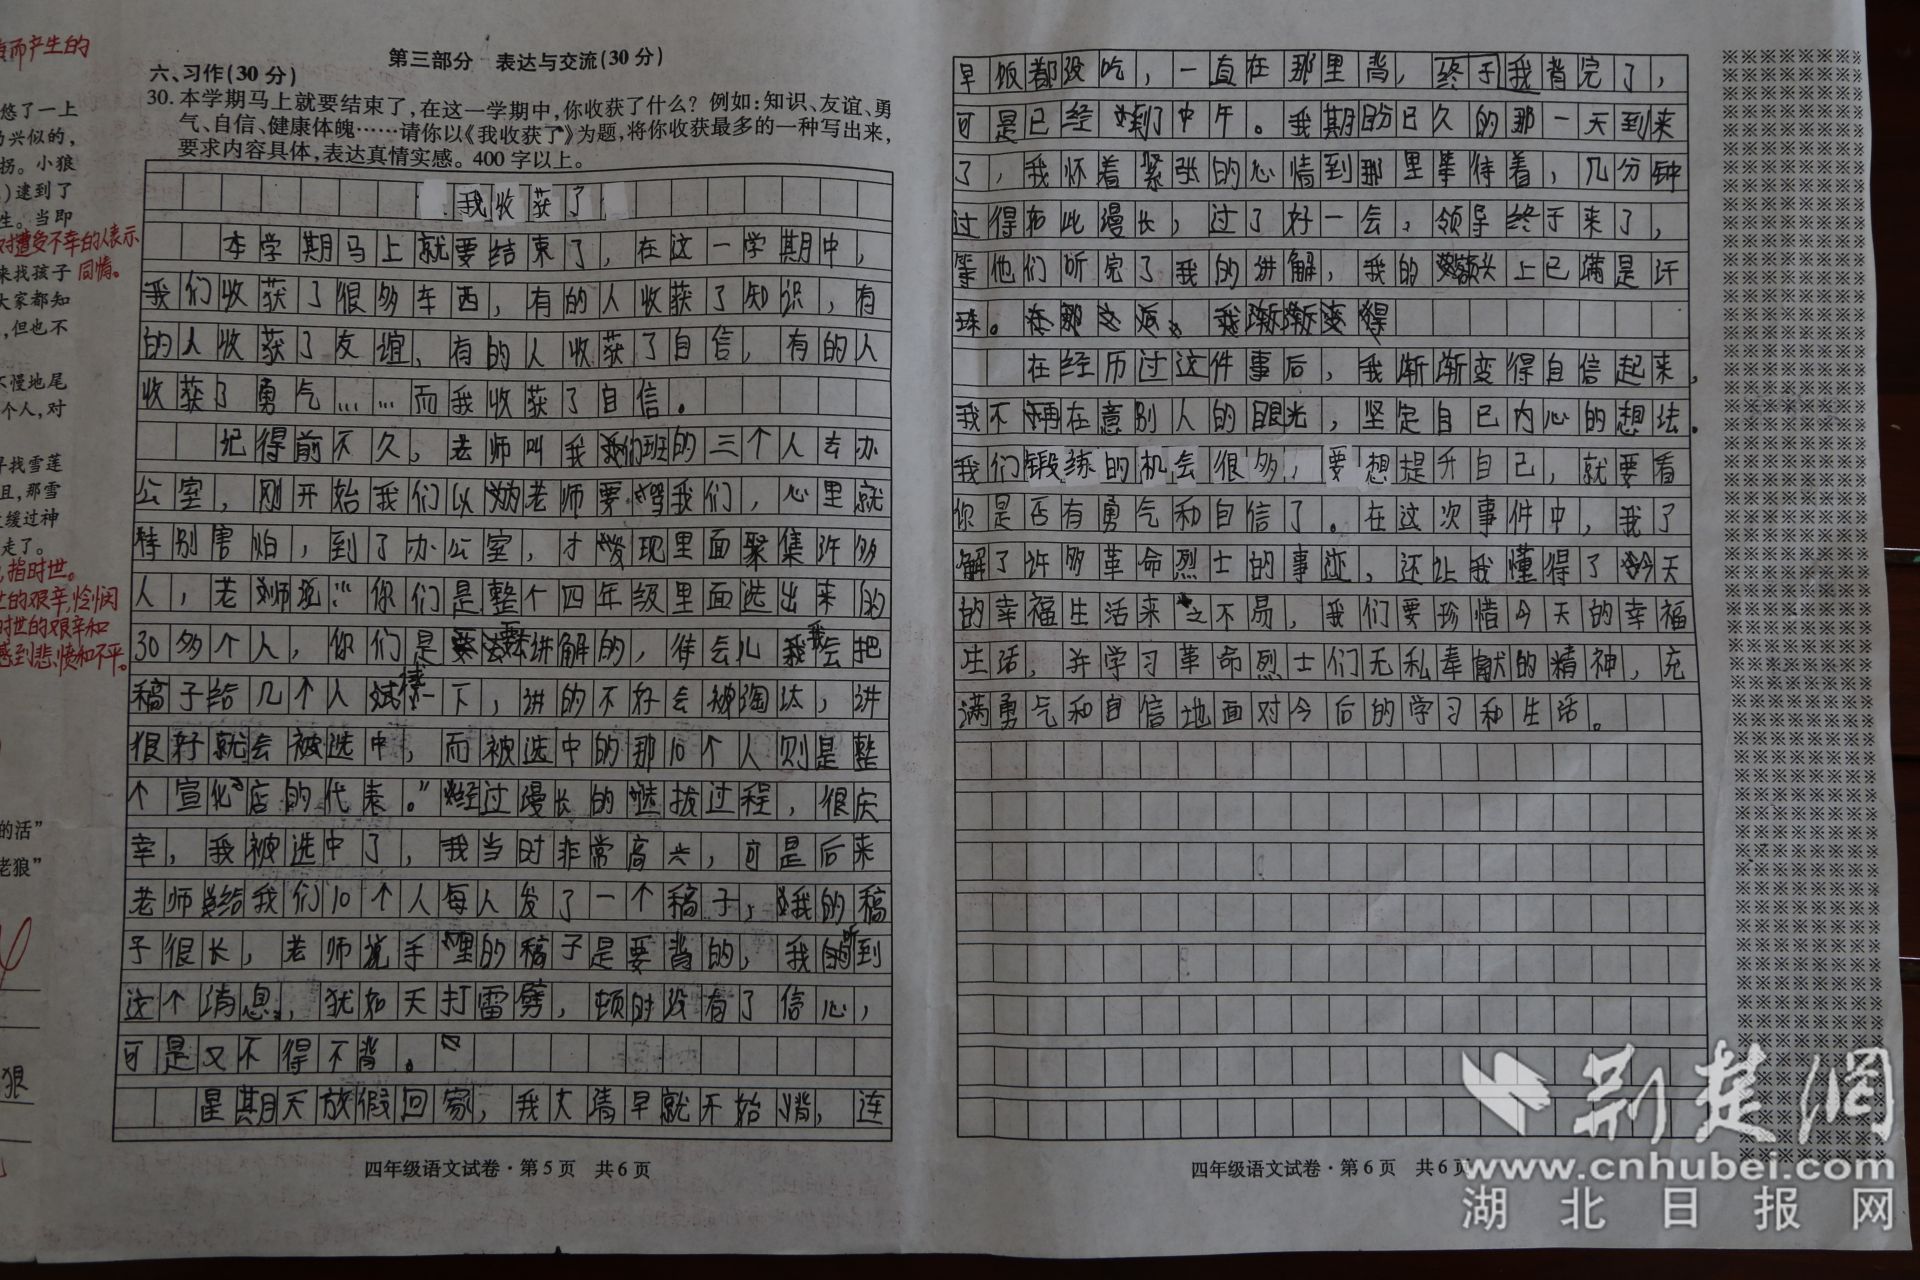 真而产生的
悠了一上
的兴似的，
拐。小狼
)逮到了
生。当即
对遭受不幸的人表示
来找孩子 同情。
大家都知
,但也不
不慢地尾
个人,对
寻找雪莲
且,那雪
缓过神
走了。
指时世。
世的艰辛,怜悯
时世的艰辛和
感到悲愤和不平。
的活”
老狼”
狼
第三部分 表达与交流(30分)
六、习作(30分)
30. 本学期马上就要结束了,在这一学期中,你收获了什么？例如:知识、友谊、勇
气、自信、健康体魄……请你以《我收获了》为题,将你收获最多的一种写出来,
要求内容具体,表达真情实感。400字以上。
我收获了
本学期马上就要结束了，在这一学期中，
我们收获了很多车西，有的人收获了知识，有
的人收获了友谊，有的人收获了自信，有的人
收获了勇气……而我收获了自信。
记得前不久，老师叫我们班的三个人去办
公室，刚开始我们以为老师要骂我们，心里就
特别害怕，到了办公室，才发现里面聚集许多
人，老师说：“你们是整个四年级里面选出来的
30多个人，你们是要去讲解的，待会儿我会把
稿子给几个人试讲一下，讲的不好会被淘汰，讲
很好就会被选中，而被选中的那10个人则是整
个宣化店的代表。”经过漫长的选拔过程，很庆
幸，我被选中了，我当时非常高兴，可是后来
老师给我们10个人每人发了一个稿子，我的稿
子很长，老师说手里的稿子是要背的，我听到
这个消息，犹如天打雷劈，顿时没有了信心，
可是又不得不背。
星期天放假回家，我大清早就开始背，连
四年级语文试卷·第5页 共6页
早饭都没吃，一直在那里背，终于我背完了，
可是已经到了中午。我期盼已久的那一天到来
了，我怀着紧张的心情到那里等待着，几分钟
过得如此漫长，过了好一会，领导终于来了，
等他们听完了我的讲解，我的额头上已满是汗
珠。
在经历过这件事后，我渐渐变得自信起来，
我不再在意别人的眼光，坚定自己内心的想法。
我们锻练的机会很多，要想提升自己，就要看
你是否有勇气和自信了。在这次事件中，我了
解了许多革命烈士的事迹，还让我懂得了今天
的幸福生活来之不易，我们要珍惜今天的幸福
生活，并学习革命烈士们无私奉献的精神，充
满勇气和自信地面对今后的学习和生活。
四年级语文试卷·第6页 共6页
荆楚网
www.cnhubei.com
湖北日报网